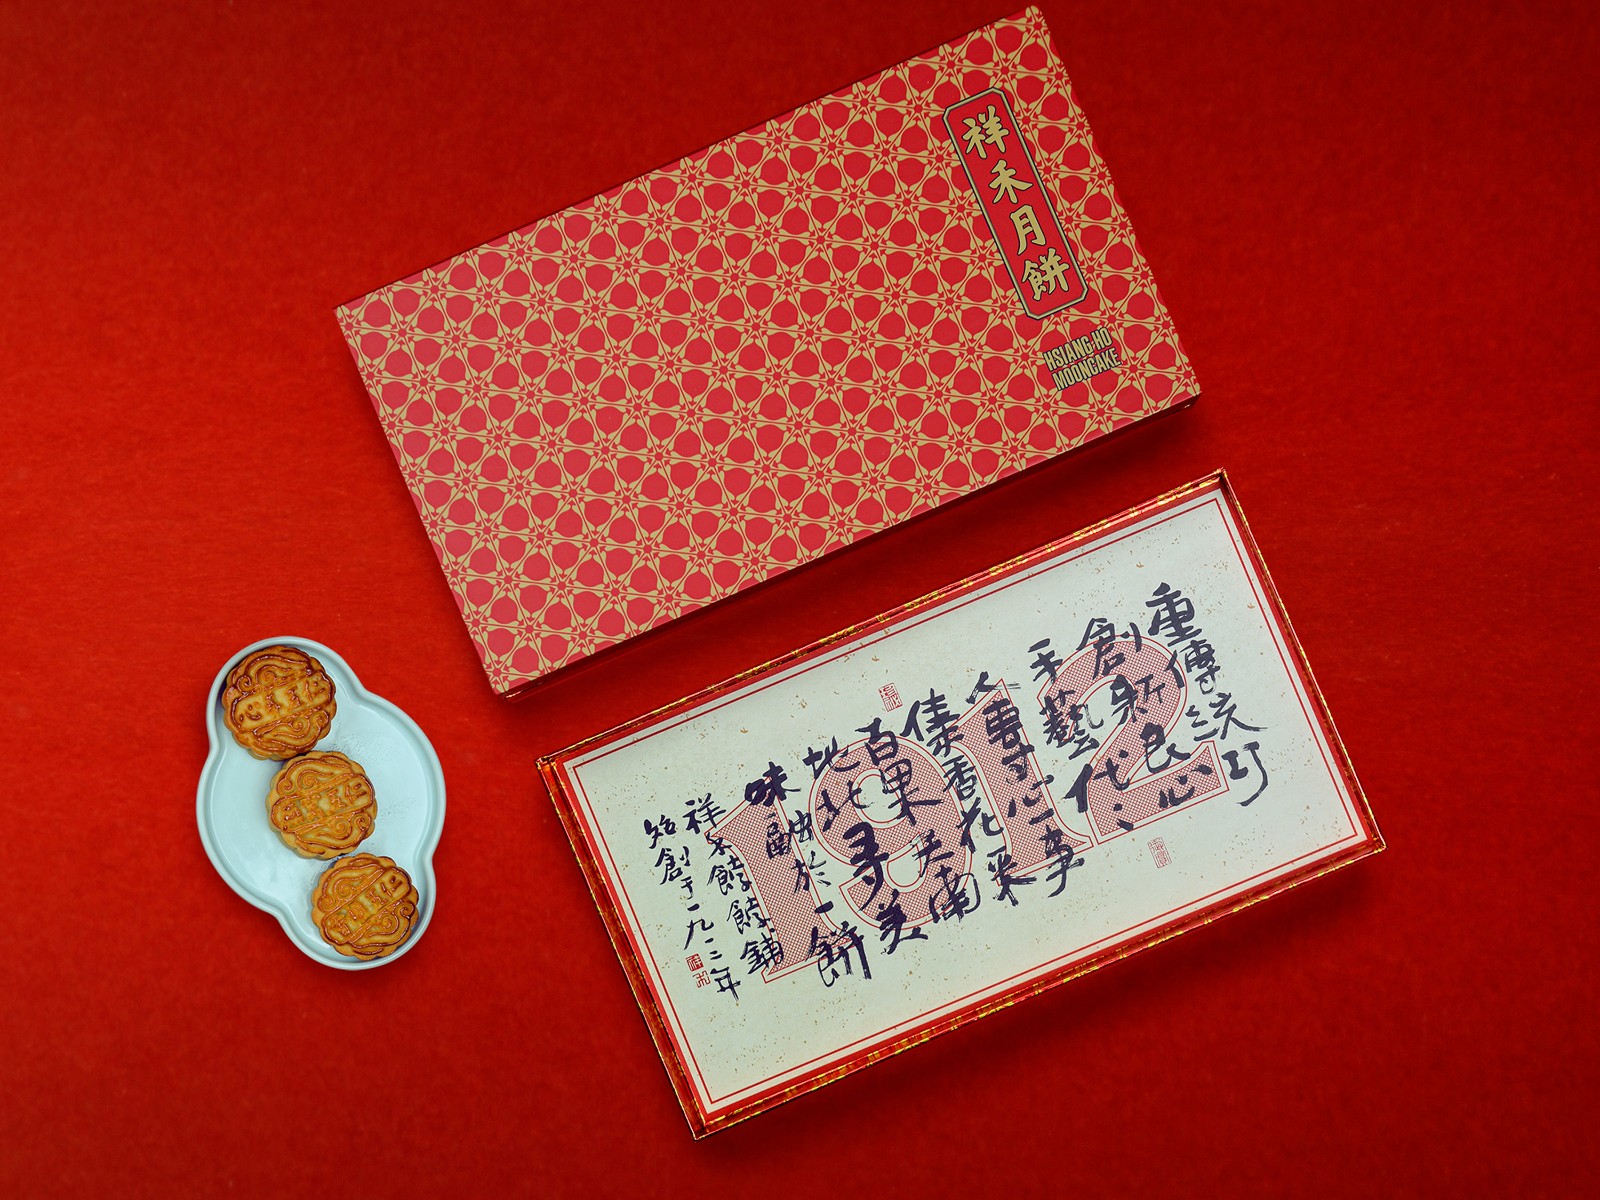 祥禾月餅
HSIANG HO
MOONCAKE
1912
重傳統巧
創新良心
手藝代々
人專心一事
香花采
百果天南
地北尋美
味融於一餅
祥禾餑餑鋪
始創于一九一二年